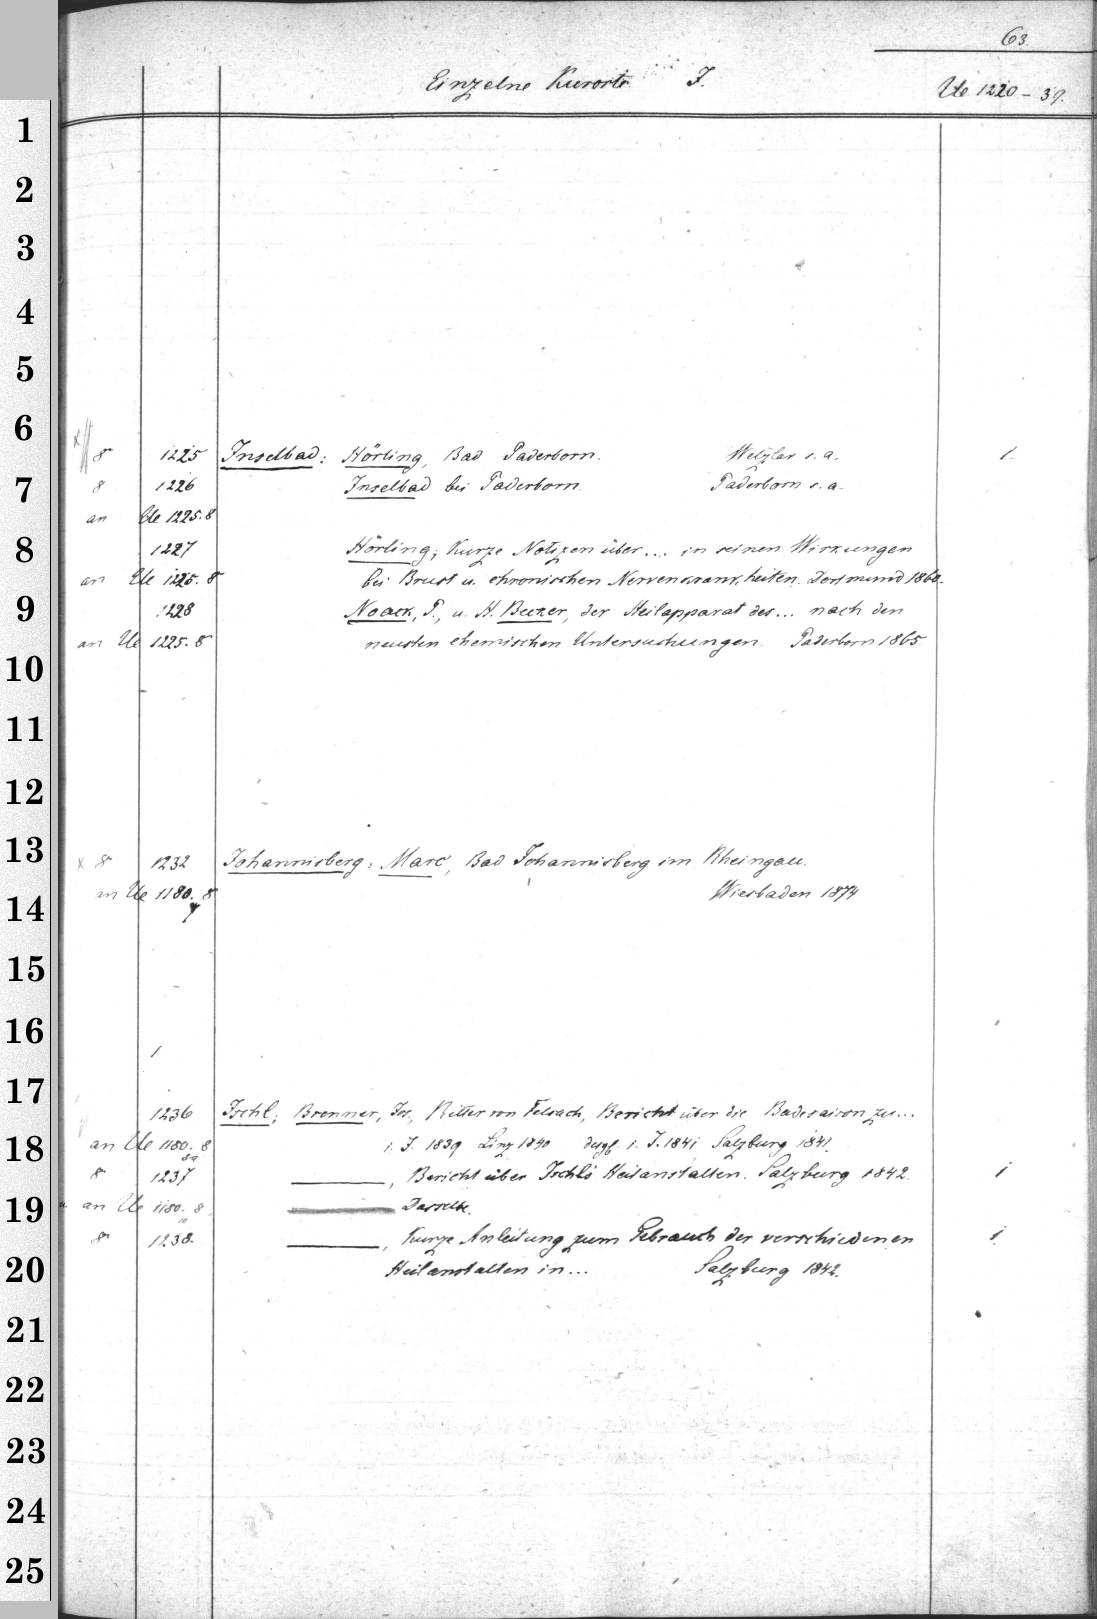 63.
Einzelne Kurorte J.
Ue 1220-39.
1
2
3
4
5
6
8 1225 Inselbad: Hörling, Bad Paderborn. Wetzlar s. a. 1.
7
8 1226 Inselbad bei Paderborn. Paderborn s. a.
an Ue 1225.8
8
1227 Hörling, Kurze Notizen über... in seinen Wirkungen
an Ue 1225.8 bei Brust u. chronischen Nervenkrankheiten. Dortmund 1860.
9
1228 Noack, T., u. H. Becker, der Heilapparat des... nach den
an Ue 1225.8 neusten chemischen Untersuchungen. Paderborn 1865
10
11
12
13
x 8 1232 Johannisberg: Marc, Bad Johannisberg im Rheingau.
an Ue 1180.8 Wiesbaden 1874
14
15
16
17
1236 Ischl: Brenner, Jos., Ritter von Felsach, Bericht über die Badesaison zu...
18
an Ue 1180.8 i. J. 1839 Linz 1840 desgl. i. J. 1841 Salzburg 1841.
8 1237 , Bericht über Ischls Heilanstalten. Salzburg 1842. 1
19
an Ue 1180.8 Dasselbe.
8 1238. , Kurze Anleitung zum Gebrauch der verschiedenen 1.
20
Heilanstalten in... Salzburg 1842.
21
22
23
24
25